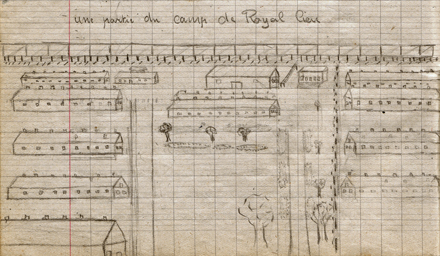 une partie du camp de Royal lieu